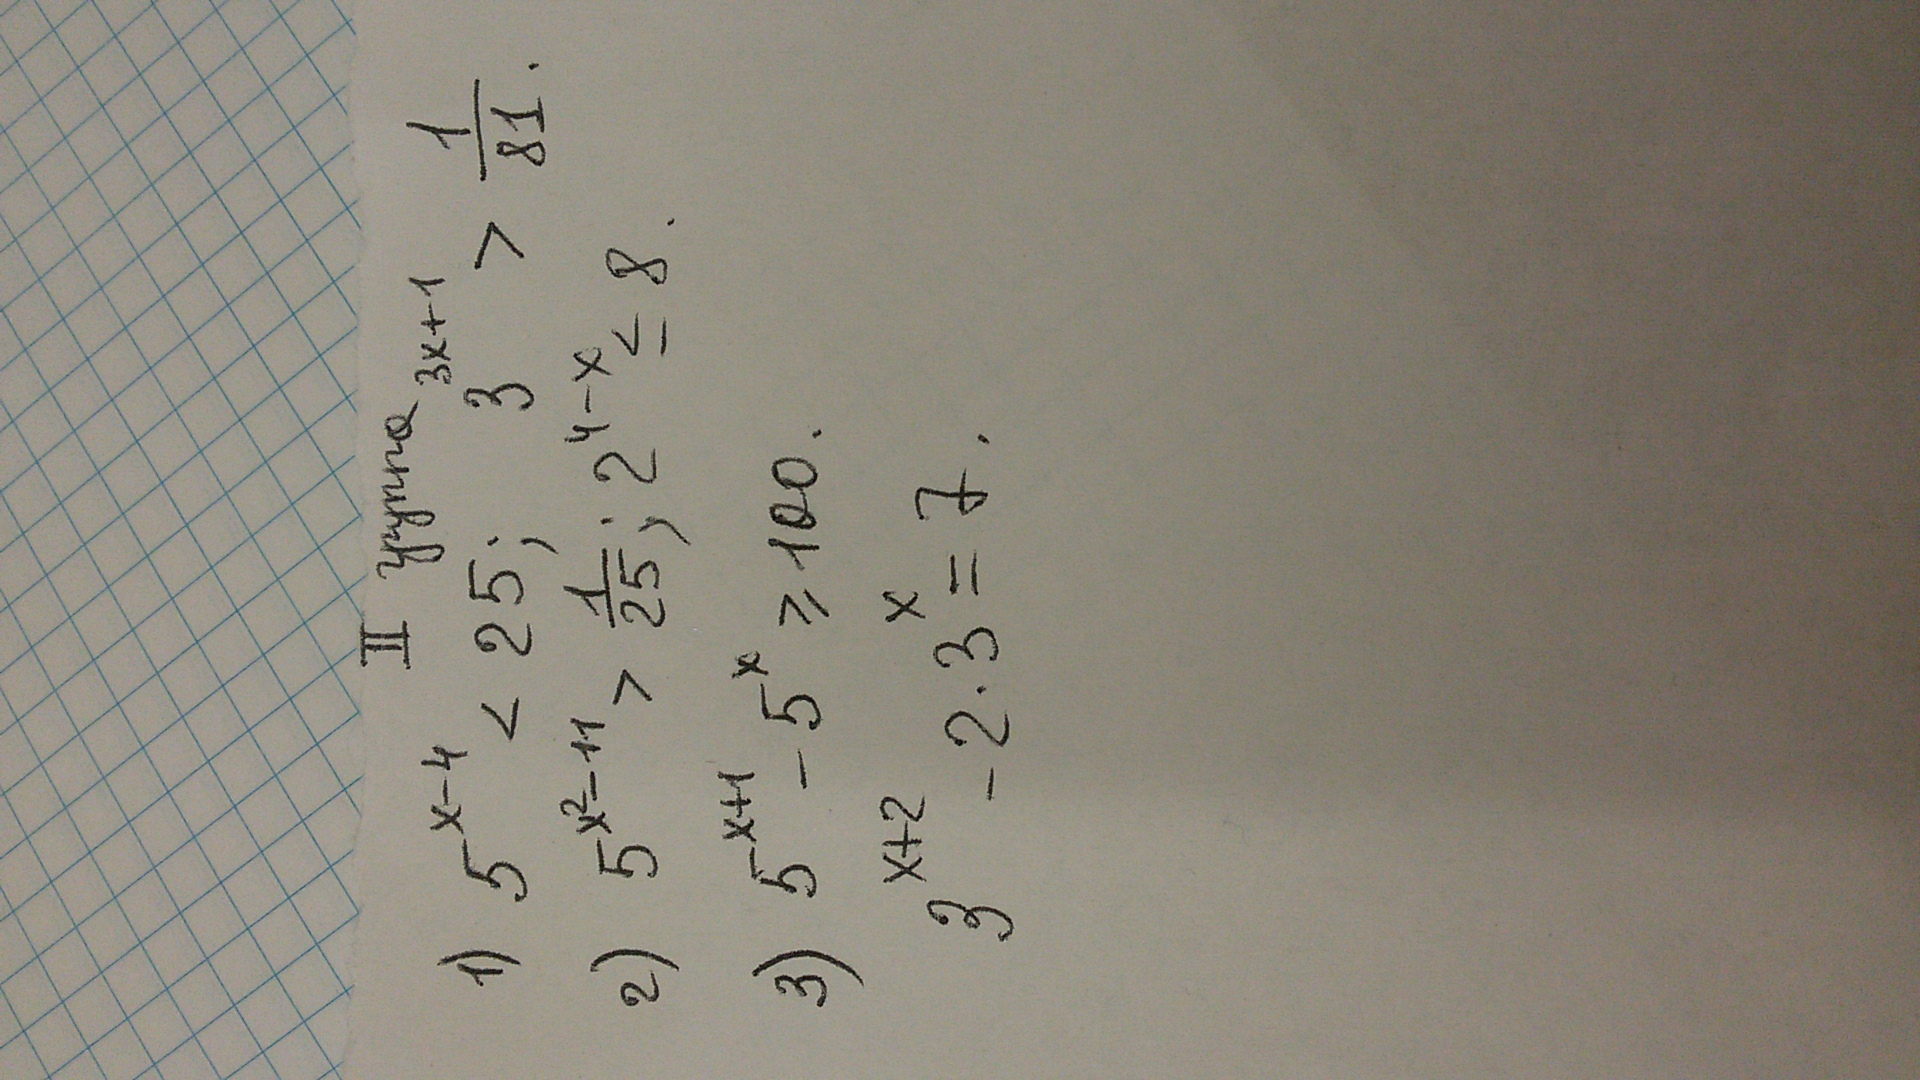 II группа
1) 5^{x-4} < 25; 3^{3x+1} > \frac{1}{81}.
2) 5^{x^2-11} > \frac{1}{25}; 2^{4-x} ≤ 8.
3) 5^{x+1} - 5^x ≥ 100.
3^{x+2} - 2·3^x = 7.